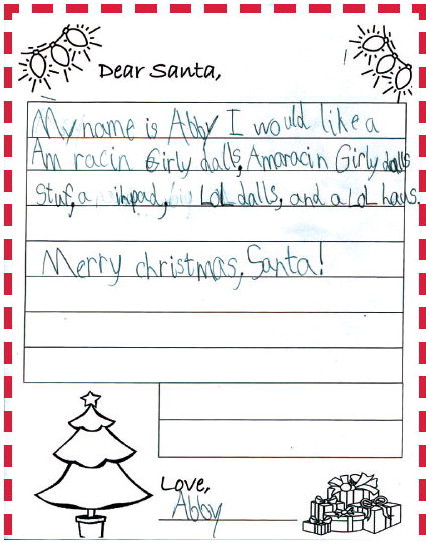 Dear Santa,
My name is Abby I would like a
Am racin Girly dalls, Amaracin Girly dalls
stuf, a ihpad, LOL dalls, and a LOL haus.
Merry christmas, Santa!
Love,
Abby